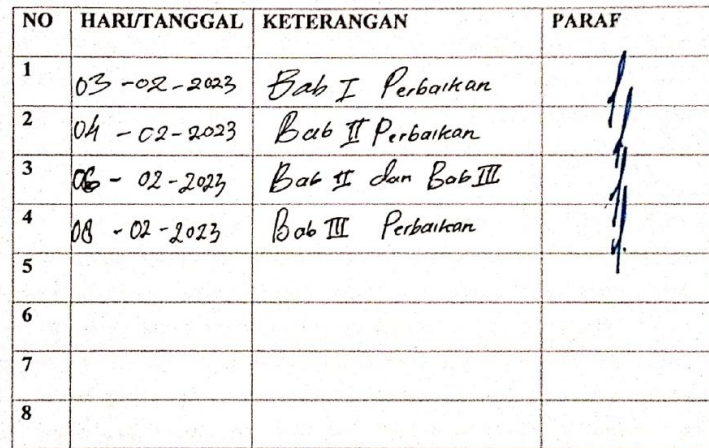 NO HARI/TANGGAL KETERANGAN PARAF
1 03-02-2023 Bab I Perbaikan
2 04-02-2023 Bab II Perbaikan
3 06-02-2023 Bab II dan Bab III
4 08-02-2023 Bab III Perbaikan
5
6
7
8